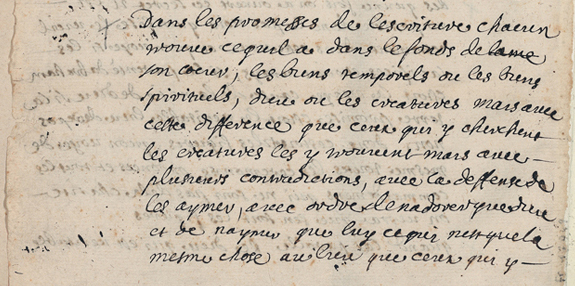 dans les promesses de lescriture chacun
trouve ce quil a dans le fonds de lame
son coeur, les biens temporels ou les biens
spirituels, dieu ou les creatures mais avec
cette difference que ceux qui y cherchent
les creatures les y trouvent mais avec
plusieurs contradictions, avec la deffense de
les aymer, avec ordre de nadorer que dieu
et de naymer que luy ce qui nest que la
mesme chose au lieu que ceux qui y